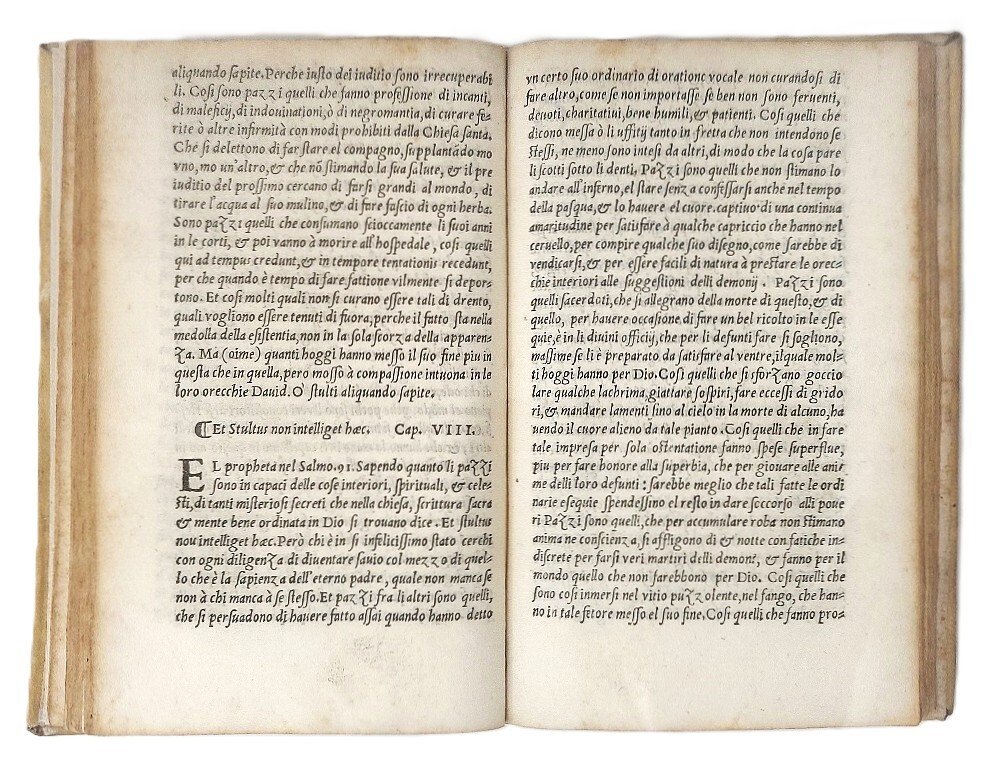 aliquando sapite. Perche iusto dei iuditio sono irrecuperabi
li. Cosi sono pazzi quelli che fanno professione di incanti,
di maleficij, di indouinationi, ò di negromantia, di curare fe-
rite ò altre infirmità con modi prohibiti dalla Chiesa santa.
Che si delettono di far stare el compagno, supplantãdo mo
vno, mo un'altro, & che nõ stimando la sua salute, & il pre
iuditio del prossimo cercano di farsi grandi al mondo, di
tirare l'acqua al suo mulino, & di fare fascio di ogni herba.
Sono pazzi quelli che consumano sciocamente li suoi anni
in le corti, & poi vanno à morire all'hospedale, cosi quelli
qui ad tempus credunt, & in tempore tentationis recedunt,
per che quando è tempo di fare fattione vilmente si depor-
tono. Et cosi molti quali non si curano essere tali di drento,
quali vogliono essere tenuti di fuora, perche il fatto sta nella
medolla della esistentia, non in la sola scorza della apparen-
za. Ma (oime) quanti hoggi hanno messo il suo fine piu in
questa che in quella, pero mosso à compassione intuona in le
loro orecchie Dauid. O' stulti aliquando sapite.
Et Stultus non intelliget hæc. Cap. VIII.
EL propheta nel Salmo. 91. Sapendo quanto li pazzi
sono in capaci delle cose interiori, spirituali, & cele-
sti, di tanti misteriosi secreti che nella chiesa, scrittura sacra
& mente bene ordinata in Dio si trouano dice. Et stultus
nou intelliget hæc. Però chi è in si infelicissimo stato cerchi
con ogni diligenza di diuentare sauio col mezzo di quel-
lo che è la sapienza dell'eterno padre, quale non manca se
non à chi manca à se stesso. Et pazzi fra li altri sono quelli,
che si persuadono di hauere fatto assai quando hanno detto
vn certo suo ordinario di oratione vocale non curandosi di
fare altro, come se non importasse se ben non sono feruenti,
deuoti, charitatiui, bene humili, & patienti. Cosi quelli che
dicono messa ò li uffitij tanto in fretta che non intendono se
stessi, ne meno sono intesi da altri, di modo che la cosa pare
li scotti sotto li denti, Pazzi sono quelli che non stimano lo
andare all'inferno, el stare senza confessarsi anche nel tempo
della pasqua, & lo hauere el cuore captiuo di una continua
amaritudine per satisfare à qualche capriccio che hanno nel
ceruello, per compire qualche suo disegno, come sarebbe di
vendicarsi, & per essere facili di natura à prestare le orec-
chie interiori alle suggestioni delli demonij. Pazzi sono
quelli sacerdoti, che si allegrano della morte di questo, & di
quello, per hauere occasione di fare un bel ricolto in le esse
quie, è in li diuini officij, che per li defunti fare si sogliono,
massime se li è preparato da satisfare al ventre, il quale mol-
ti hoggi hanno per Dio. Cosi quelli che si sforzano goccio
lare qualche lachrima, giattare sospiri, fare eccessi di grido
ri, & mandare lamenti sino al cielo in la morte di alcuno, ha
uendo il cuore alieno da tale pianto. Cosi quelli che in fare
tale impresa per sola ostentatione fanno spese superflue,
piu per fare honore alla superbia, che per giouare alle ani-
me delli loro defunti: sarebbe meglio che tali fatte le ordi
narie esequie spendessino el resto in dare soccorso alli poue
ri Pazzi sono quelli, che per accumulare roba non stimano
anima ne conscienza, si affligono di & notte con fatiche in-
discrete per farsi veri martiri delli demoni, & fanno per il
mondo quello che non farebbono per Dio. Cosi quelli che
sono cosi inmersi nel vitio puzzolente, nel fango, che han-
no in tale fetore messo el suo fine. Cosi quelli che fanno pro-